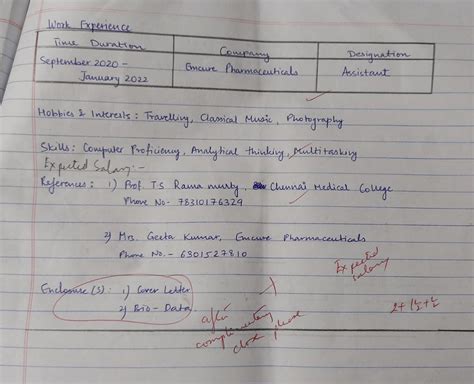 Work Experience
Time Duration Company Designation
September 2020 - Emcure Pharmaceuticals Assistant
January 2022
Hobbies & Interests: Travelling, Classical Music, Photography
Skills: Computer Proficiency, Analytical thinking, Multitasking
Expected Salary:-
References: 1) Prof. TS Rama murty, Chennai Medical College
Phone No- 78310176329
2) Mrs. Geeta Kumar, Emcure Pharmaceuticals
Phone No. - 6301527810
Expected
salary
Enclosure(s): 1) Cover Letter
2) Bio-Data
after
complimentary
close please
2+1½+½